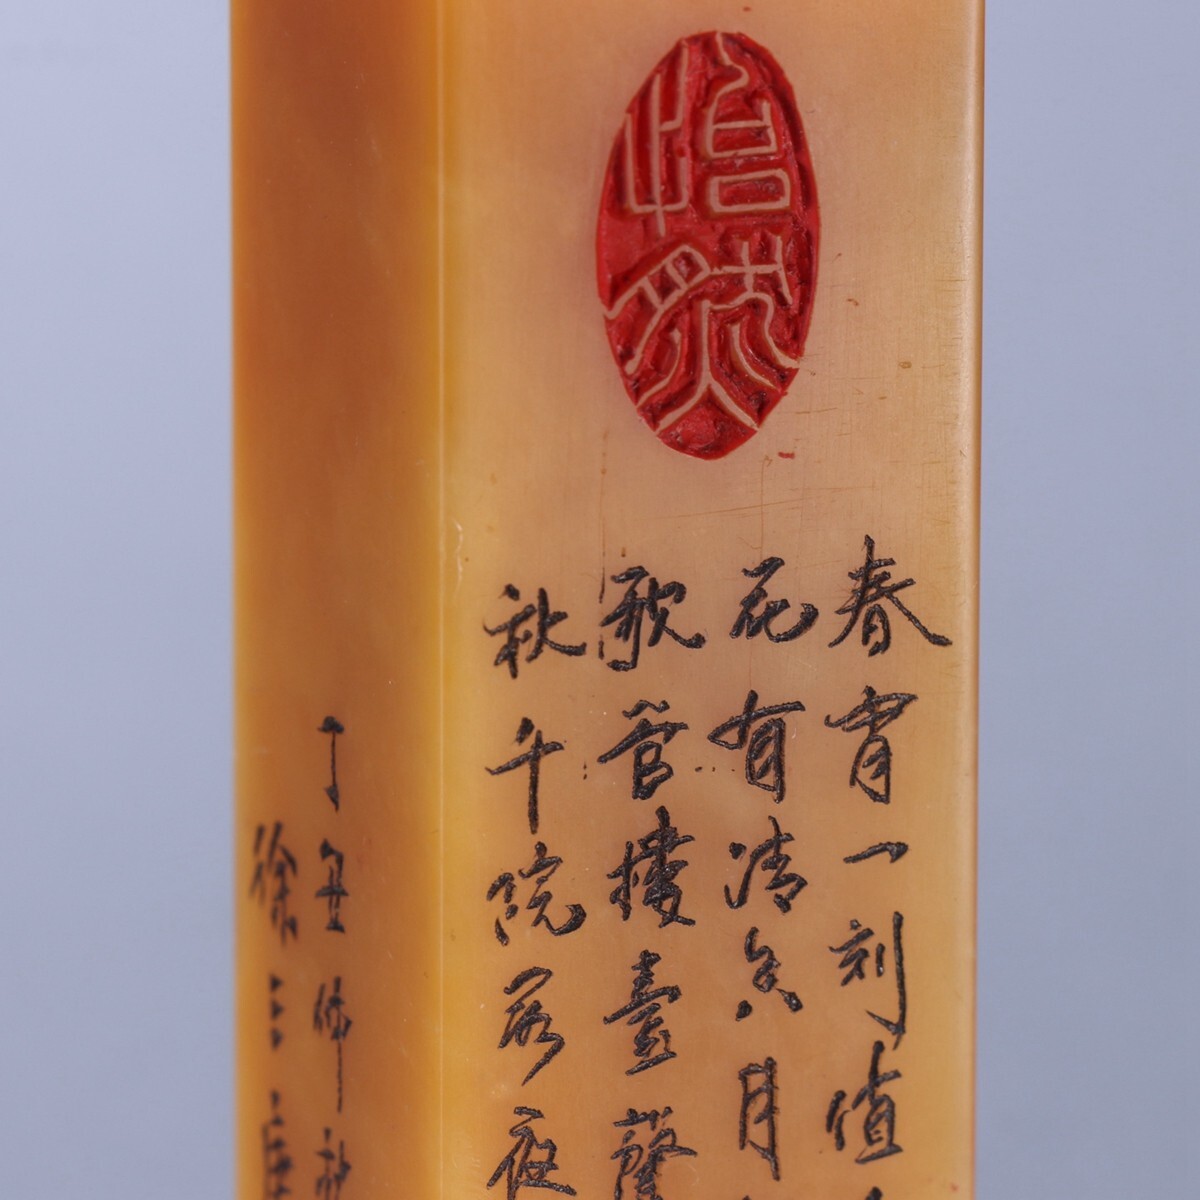 怡然
春宵一刻值
花有清香月
歌管樓臺聲
秋千院落夜
丁丑
徐三庚